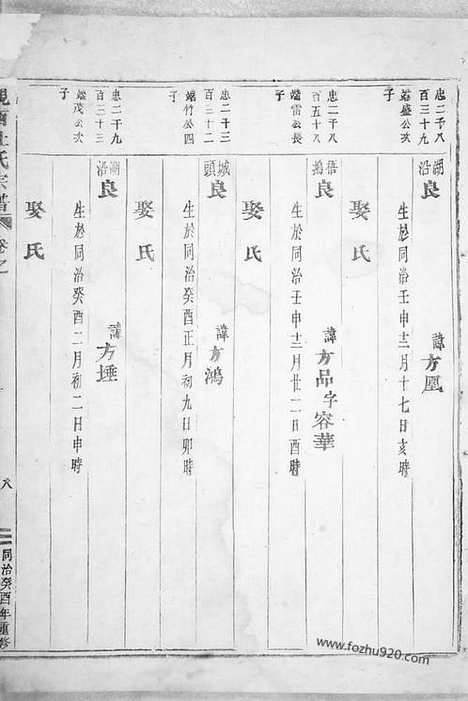 忠二千八
百三十九
端盛公次
子
湖沿
良
諱方凰
生於同治壬申十二月十七日亥時
娶氏
忠二千八
百五十八
端雷公長
子
良
諱方品字容華
生於同治壬申十二月廿二日酉時
娶氏
忠二千三
百三十二
端竹公四
子
城頭
良
諱方鴻
生於同治癸酉正月初九日卯時
娶氏
忠二千九
百三十三
端茂公次
子
湖沿
良
諱方埵
生於同治癸酉二月初二日申時
娶氏
杜氏宗譜
卷之
八
同治癸酉年重修
www.fozhu920.com